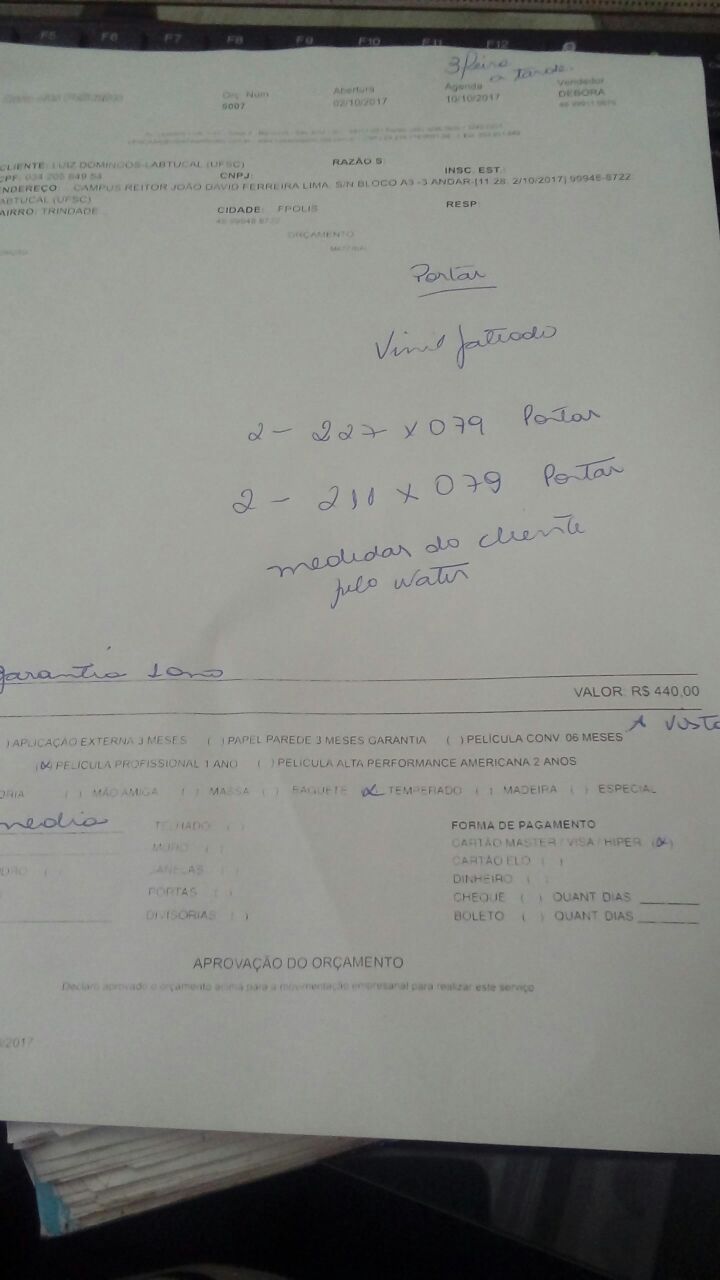 F5 F6 F7 F8 F9 F10 F11 F12
3 feira
a tarde.
Orç. Num Abertura Agenda Vendedor
9007 02/10/2017 10/10/2017 DEBORA
CLIENTE: LUIZ DOMINGOS-LABTUCAL (UFSC) RAZÃO S:
CPF: CNPJ: INSC. EST.:
ENDEREÇO CAMPUS REITOR JOÃO DAVID FERREIRA LIMA, S/N BLOCO A3 -3 ANDAR-[11:28, 2/10/2017] 99948-8722
ABTUCAL (UFSC)
AIRRO: TRINDADE CIDADE: FPOLIS RESP:
48 99948 8722
ORÇAMENTO
MATERIAL
Portas
Vinil jateado
2 - 227 x 079 Portas
2 - 211 x 079 Portas
medidas do cliente
pelo
garantia 1 ano
VALOR: R$ 440,00
A vista
) APLICAÇÃO EXTERNA 3 MESES ( ) PAPEL PAREDE 3 MESES GARANTIA ( ) PELÍCULA CONV. 06 MESES
(x) PELÍCULA PROFISSIONAL 1 ANO ( ) PELÍCULA ALTA PERFORMANCE AMERICANA 2 ANOS
ORIA ( ) MÃO AMIGA ( ) MASSA ( ) BAGUETE x TEMPERADO ( ) MADEIRA ( ) ESPECIAL
media TELHADO ( ) FORMA DE PAGAMENTO
MURO ( ) CARTÃO MASTER / VISA / HIPER (x)
DRO ( ) JANELAS ( ) CARTÃO ELO ( )
PORTAS ( ) DINHEIRO ( )
DIVISÓRIAS ( ) CHEQUE ( ) QUANT DIAS
BOLETO ( ) QUANT DIAS
APROVAÇÃO DO ORÇAMENTO
Declaro aprovado o orçamento acima para a movimentação empresarial para realizar este serviço
/2017